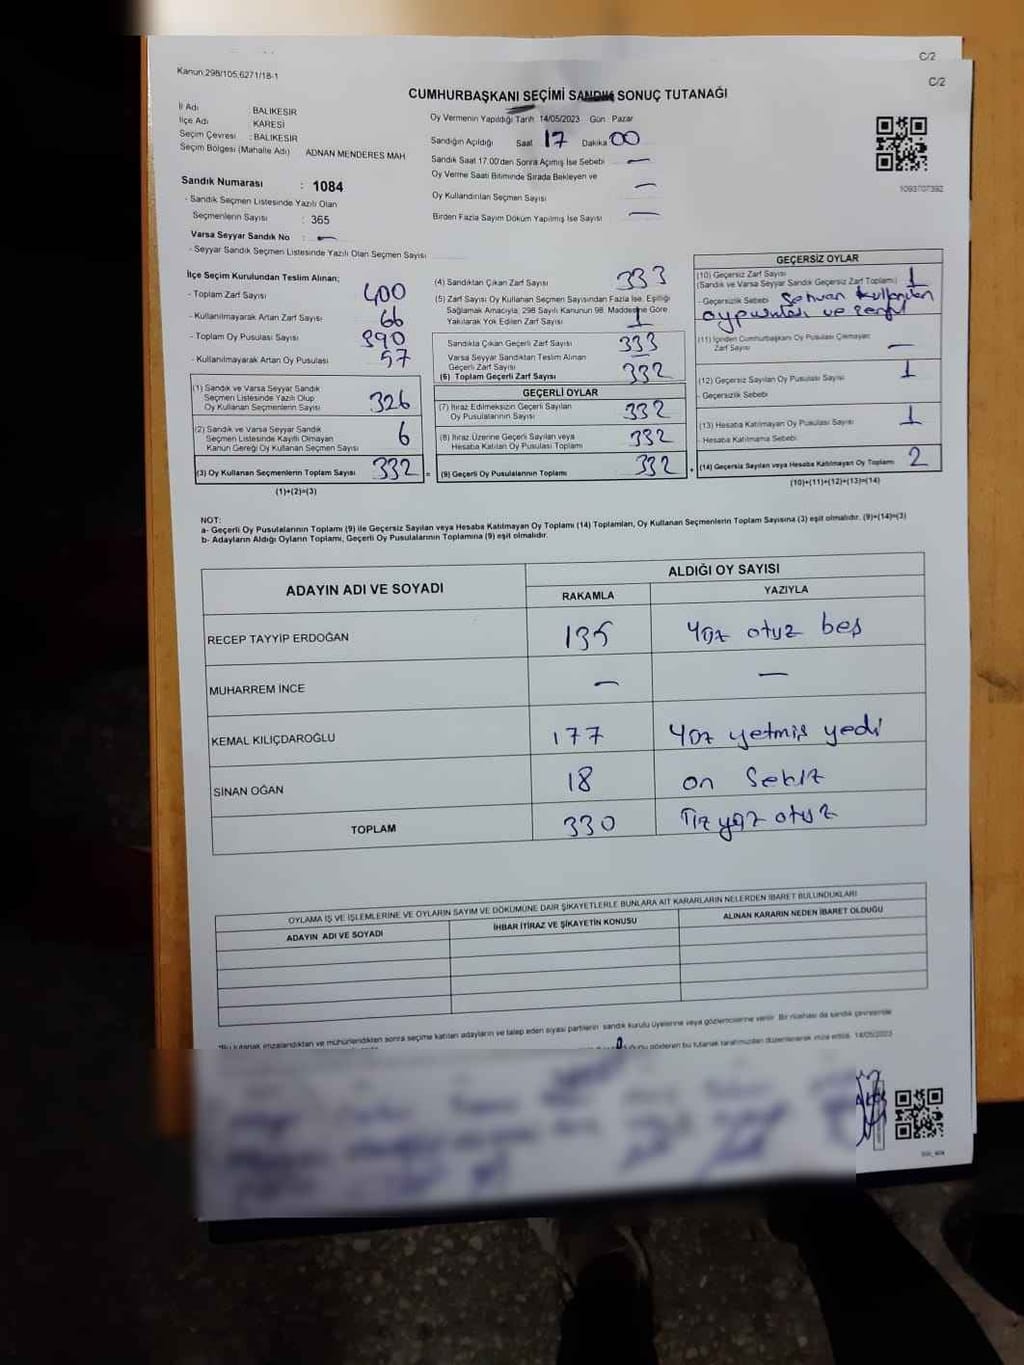 C/2
C/2
Kanun:298/105;6271/18-1
CUMHURBAŞKANI SEÇİMİ SANDIK SONUÇ TUTANAĞI
İl Adı : BALIKESİR
İlçe Adı : KARESİ
Seçim Çevresi : BALIKESİR
Seçim Bölgesi (Mahalle Adı) ADNAN MENDERES MAH
Oy Vermenin Yapıldığı Tarih 14/05/2023 Gün : Pazar
Sandığın Açıldığı Saat 17 Dakika 00
Sandık Saat 17.00'den Sonra Açılmış İse Sebebi —
Oy Verme Saati Bitiminde Sırada Bekleyen ve
Oy Kullandırılan Seçmen Sayısı —
Birden Fazla Sayım Döküm Yapılmış İse Sayısı —
1093707392
Sandık Numarası : 1084
- Sandık Seçmen Listesinde Yazılı Olan
Seçmenlerin Sayısı : 365
Varsa Seyyar Sandık No : —
- Seyyar Sandık Seçmen Listesinde Yazılı Olan Seçmen Sayısı
İlçe Seçim Kurulundan Teslim Alınan;
- Toplam Zarf Sayısı 400
- Kullanılmayarak Artan Zarf Sayısı 66
- Toplam Oy Pusulası Sayısı 390
- Kullanılmayarak Artan Oy Pusulası 57
(1) Sandık ve Varsa Seyyar Sandık
Seçmen Listesinde Yazılı Olup
Oy Kullanan Seçmenlerin Sayısı 326
(2) Sandık ve Varsa Seyyar Sandık
Seçmen Listesinde Kayıtlı Olmayan
Kanun Gereği Oy Kullanan Seçmen Sayısı 6
(3) Oy Kullanan Seçmenlerin Toplam Sayısı 332
(1)+(2)=(3)
(4) Sandıktan Çıkan Zarf Sayısı 333
(5) Zarf Sayısı Oy Kullanan Seçmen Sayısından Fazla İse, Eşitliği
Sağlamak Amacıyla, 298 Sayılı Kanunun 98. Maddesine Göre
Yakılarak Yok Edilen Zarf Sayısı 1
Sandıkta Çıkan Geçerli Zarf Sayısı 333
Varsa Seyyar Sandıktan Teslim Alınan
Geçerli Zarf Sayısı
(6) Toplam Geçerli Zarf Sayısı 332
GEÇERLİ OYLAR
(7) İtiraz Edilmeksizin Geçerli Sayılan
Oy Pusulalarının Sayısı 332
(8) İtiraz Üzerine Geçerli Sayılan veya
Hesaba Katılan Oy Pusulası Toplamı 332
(9) Geçerli Oy Pusulalarının Toplamı 332
GEÇERSİZ OYLAR
(10) Geçersiz Zarf Sayısı
(Sandık ve Varsa Seyyar Sandık Geçersiz Zarf Toplamı) 1
- Geçersizlik Sebebi
(11) İçinden Cumhurbaşkanı Oy Pusulası Çıkmayan
Zarf Sayısı —
(12) Geçersiz Sayılan Oy Pusulası Sayısı 1
- Geçersizlik Sebebi
(13) Hesaba Katılmayan Oy Pusulası Sayısı 1
- Hesaba Katılmama Sebebi
(14) Geçersiz Sayılan veya Hesaba Katılmayan Oy Toplamı 2
(10)+(11)+(12)+(13)=(14)
NOT:
a- Geçerli Oy Pusulalarının Toplamı (9) ile Geçersiz Sayılan veya Hesaba Katılmayan Oy Toplamı (14) Toplamları, Oy Kullanan Seçmenlerin Toplam Sayısına (3) eşit olmalıdır. (9)+(14)=(3)
b- Adayların Aldığı Oyların Toplamı, Geçerli Oy Pusulalarının Toplamına (9) eşit olmalıdır.
ADAYIN ADI VE SOYADI ALDIĞI OY SAYISI
RAKAMLA YAZIYLA
RECEP TAYYİP ERDOĞAN 135 Yüz otuz beş
MUHARREM İNCE — —
KEMAL KILIÇDAROĞLU 177 Yüz yetmiş yedi
SİNAN OĞAN 18 on Sekiz
TOPLAM 330 yüz otuz
OYLAMA İŞ VE İŞLEMLERİNE VE OYLARIN SAYIM VE DÖKÜMÜNE DAİR ŞİKAYETLERLE BUNLARA AİT KARARLARIN NELERDEN İBARET BULUNDUKLARI
ADAYIN ADI VE SOYADI İHBAR İTİRAZ VE ŞİKAYETİN KONUSU ALINAN KARARIN NEDEN İBARET OLDUĞU
*Bu tutanak imzalandıktan ve mühürlendikten sonra seçime katılan adayların ve talep eden siyasi partilerin sandık kurulu üyelerine veya gözlemcilerine verilir. Bir nüshası da sandık çevresinde
gösteren bu tutanak tarafımızdan düzenlenerek imza edildi. 14/05/2023